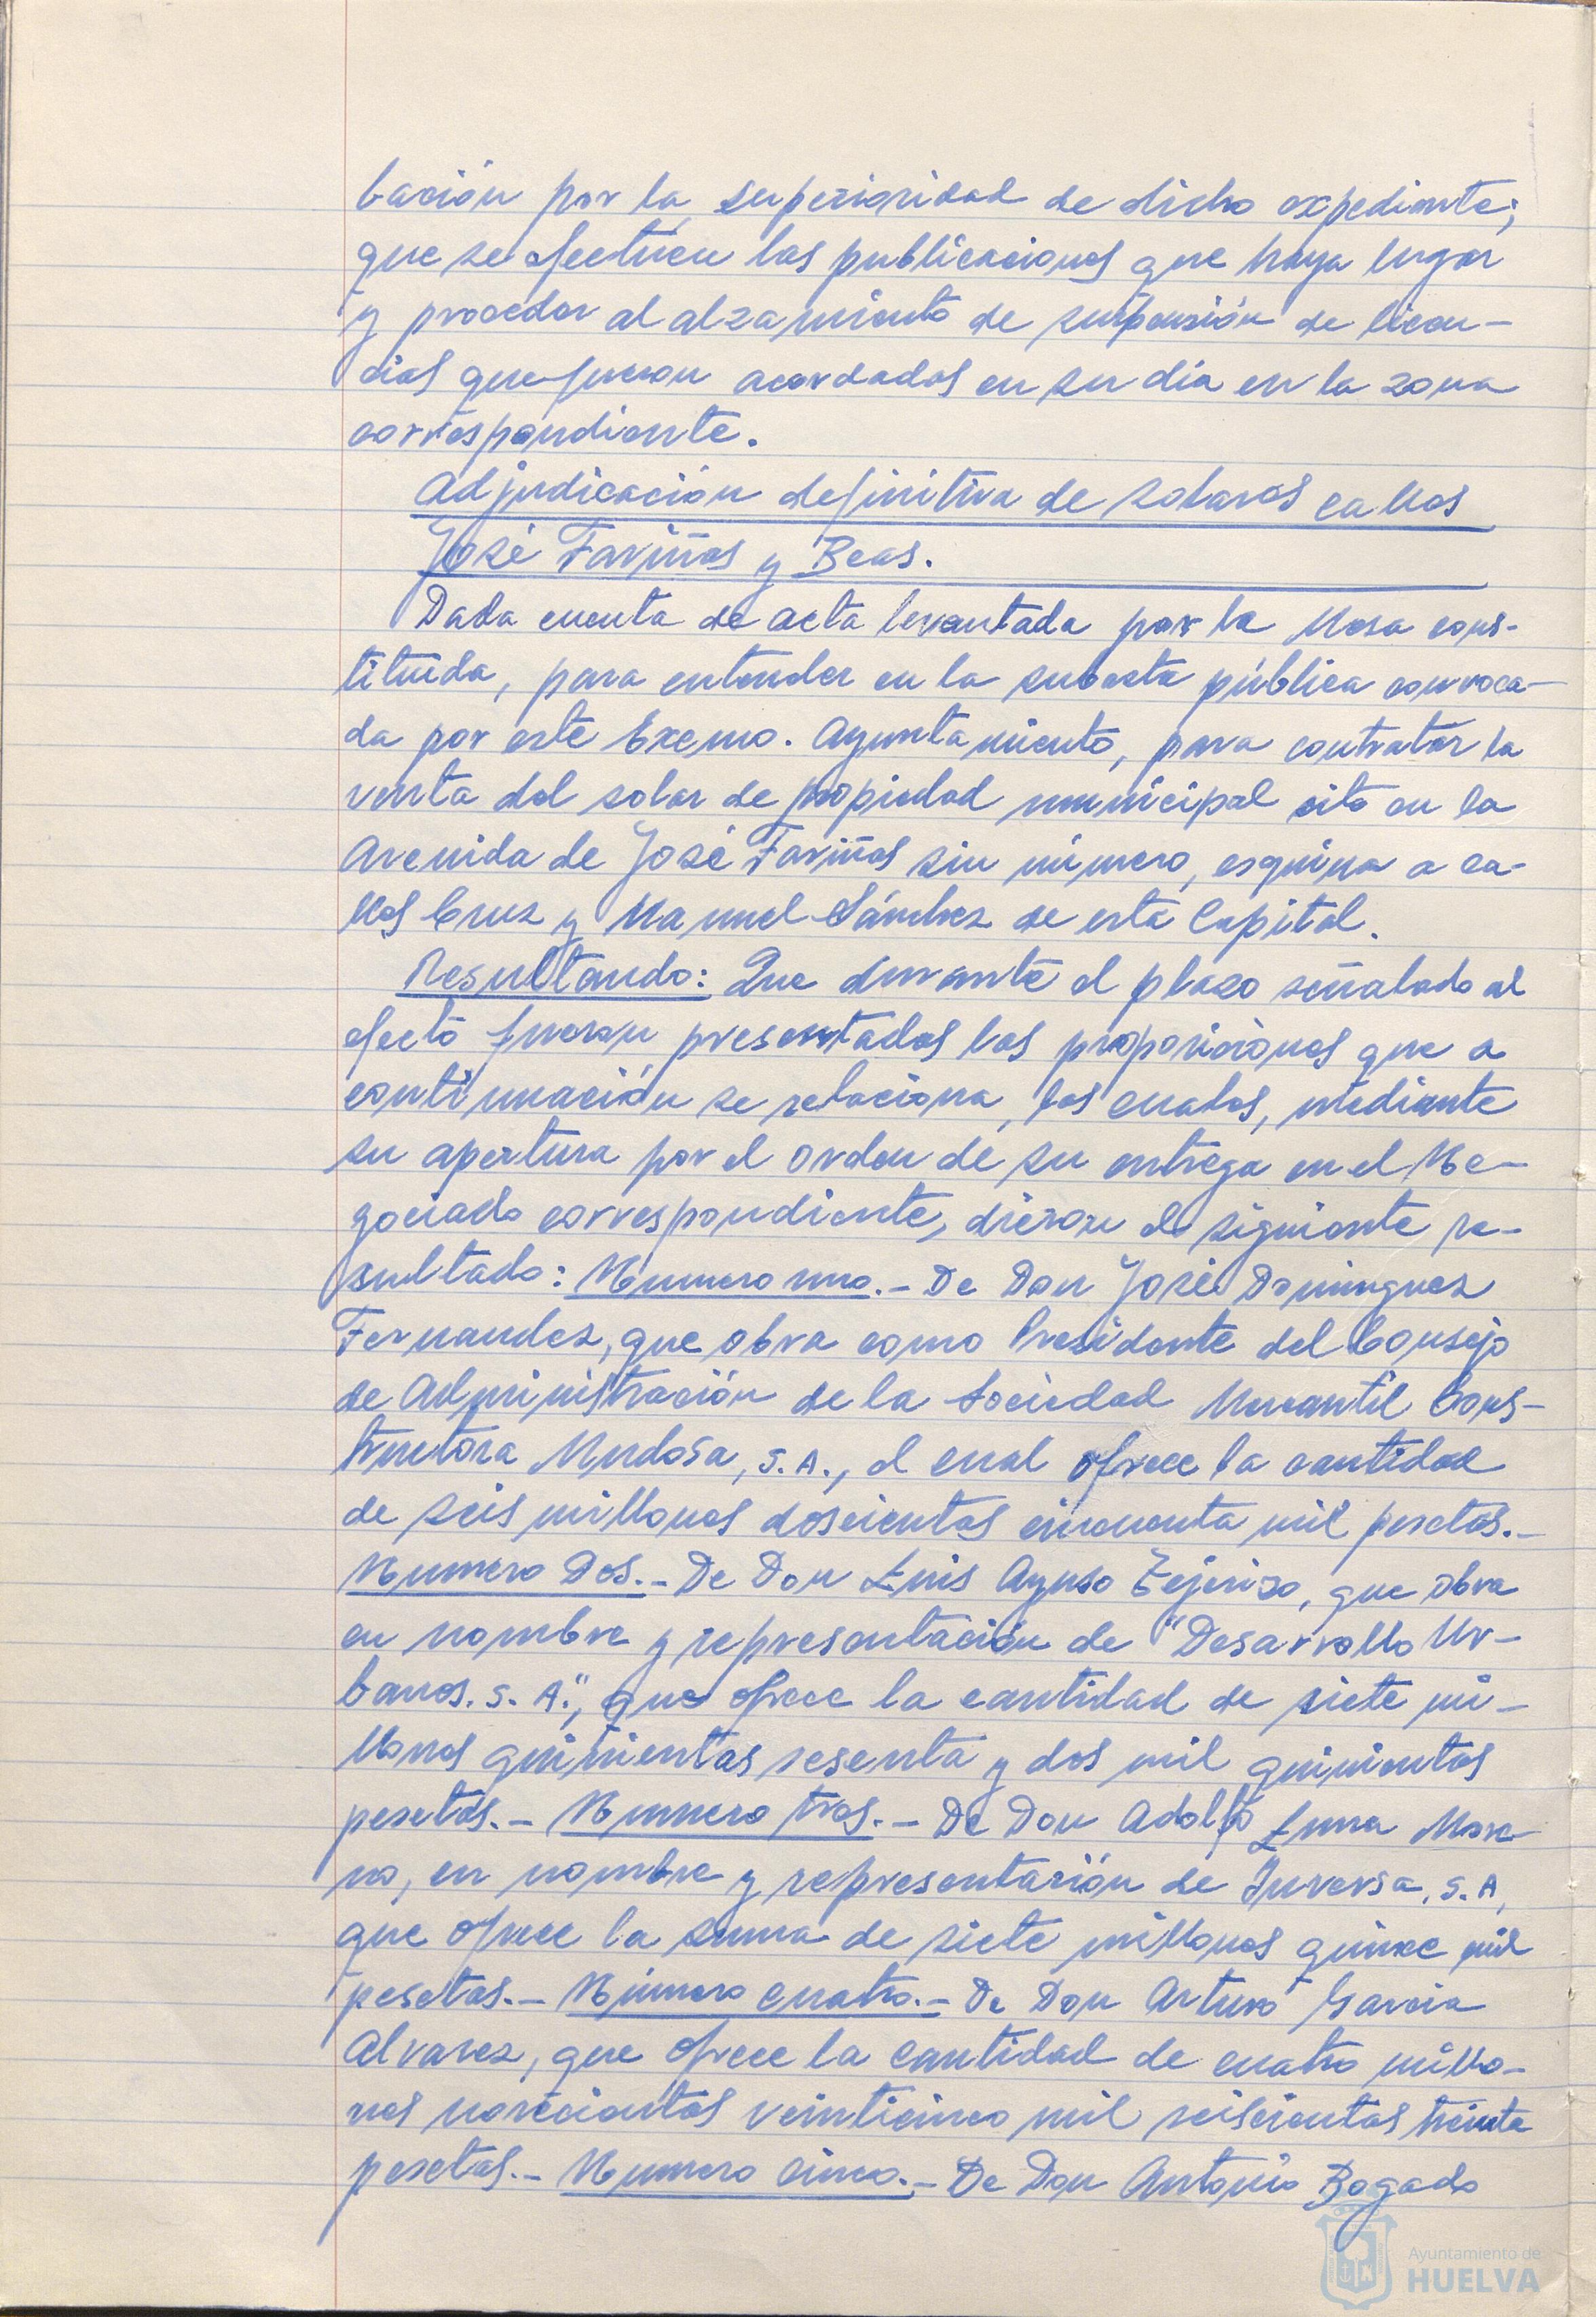 bación por la superioridad de dicho expediente;
que se efectúen las publicaciones que haya lugar
y proceder al alzamiento de suspensión de licen-
cias que fueron acordadas en su día en la zona
correspondiente.
Adjudicación definitiva de solares calles
José Fariñas y Beas.
Dada cuenta de acta levantada por la Mesa cons-
tituída, para entender en la subasta pública convoca-
da por este Excmo. Ayuntamiento, para contratar la
venta del solar de propiedad municipal sito en la
Avenida de José Fariñas sin número, esquina a ca-
lles Cruz y Manuel Sánchez de esta Capital.
Resultando: Que durante el plazo señalado al
efecto fueron presentadas las proposiciones que a
continuación se relaciona, las cuales, mediante
su apertura por el orden de su entrega en el Ne-
gociado correspondiente, dieron el siguiente re-
sultado: Numero uno.- De Don José Dominguez
Fernandez, que obra como Presidente del Consejo
de Administración de la Sociedad Mercantil Cons-
tructora Merdosa, S.A., el cual ofrece la cantidad
de seis millones doscientas cincuenta mil pesetas.-
Numero Dos.- De Don Luis Ayuso Tejerizo, que obra
en nombre y representación de "Desarrollo Ur-
banos. S. A.", que ofrece la cantidad de siete mi-
llones quinientas sesenta y dos mil quinientas
pesetas.- Numero tres.- De Don Adolfo Luna More-
no, en nombre y representación de Inversa, S.A,
que ofrece la suma de siete millones quince mil
pesetas.- Número cuatro.- De Don Arturo Garcia
Alvarez, que ofrece la cantidad de cuatro millo-
nes novecientas veinticinco mil seiscientas treinta
pesetas.- Numero cinco.- De Don Antonio Bogado
Ayuntamiento de
HUELVA